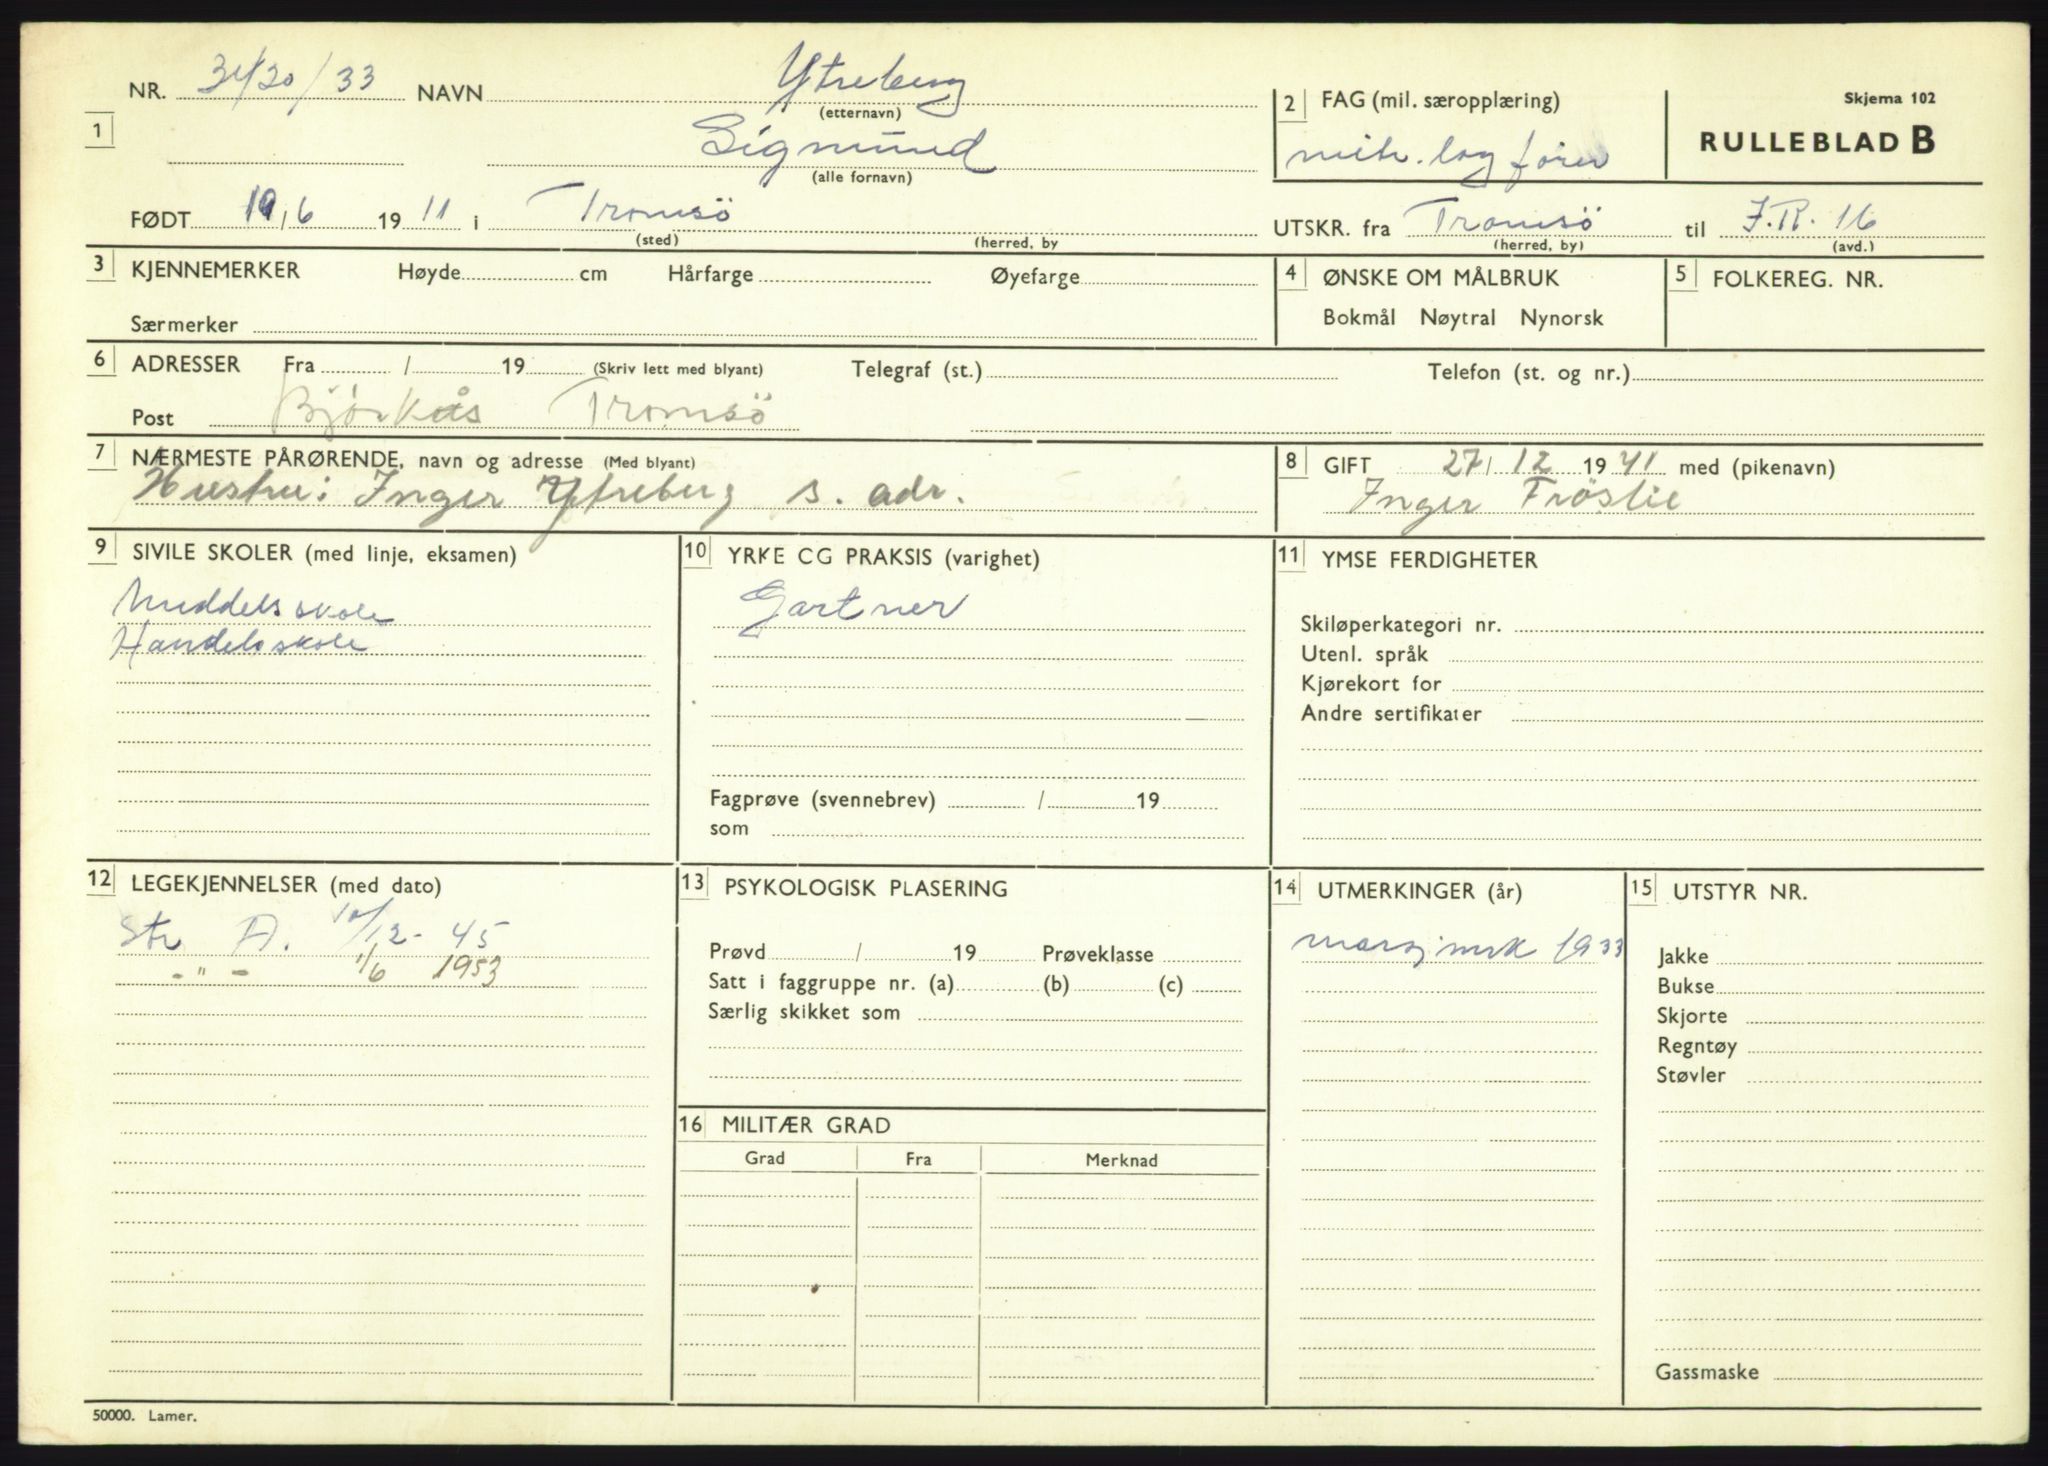 NR. 31/20/33 NAVN Ytreberg
(etternavn)
1 Sigmund
(alle fornavn)
FØDT 19/6 1911 i Tromsö
(sted) (herred, by
2 FAG (mil. særopplæring)
mitr. lagfører
Skjema 102
RULLEBLAD B
UTSKR. fra Tromsö til I.R. 16
(herred, by) (avd.)
3 KJENNEMERKER Høyde cm Hårfarge Øyefarge
Særmerker
4 ØNSKE OM MÅLBRUK
Bokmål Nøytral Nynorsk
5 FOLKEREG. NR.
6 ADRESSER Fra / 19 (Skriv lett med blyant) Telegraf (st.) Telefon (st. og nr.)
Post Bjørkås Tromsö
7 NÆRMESTE PÅRØRENDE, navn og adresse (Med blyant)
Hustru: Inger Ytreberg s. adr.
8 GIFT 27/12 1941 med (pikenavn)
Inger Tröslie
9 SIVILE SKOLER (med linje, eksamen)
Middelsskole
Handelsskole
10 YRKE CG PRAKSIS (varighet)
Gartner
Fagprøve (svennebrev) / 19
som
11 YMSE FERDIGHETER
Skiløperkategori nr.
Utenl. språk
Kjørekort for
Andre sertifikater
12 LEGEKJENNELSER (med dato)
Str A. 10/12-45
-"- 1/6 1953
13 PSYKOLOGISK PLASERING
Prøvd / 19 Prøveklasse
Satt i faggruppe nr. (a) (b) (c)
Særlig skikket som
14 UTMERKINGER (år)
marsjmrk 1933
15 UTSTYR NR.
Jakke
Bukse
Skjorte
Regntøy
Støvler
Gassmaske
16 MILITÆR GRAD
Grad Fra Merknad
50000. Lamer.